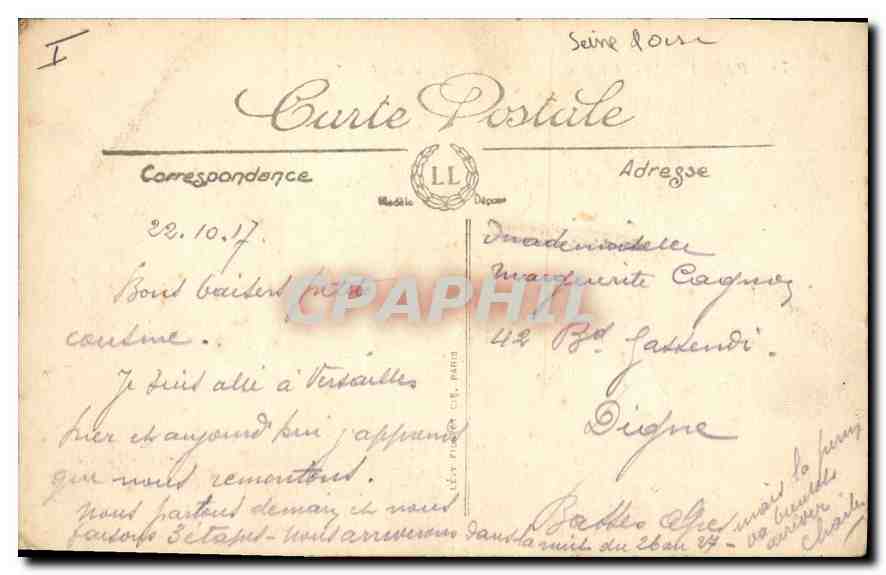 I
Seine & Oise
Carte Postale
Correspondance
LL
Modèle Déposé
Adresse
22.10.17.
Bons baisers petite
cousine.
Je suis allé à Versailles
hier et aujourd'hui j'apprends
que nous remontons.
Nous partons demain et nous
faisons 3 etapes - nous arriverons dans la nuit du 26 au 27 -
mais la
va bientôt
arriver
Charles
LÉVY FILS ET CIE, PARIS
Mademoiselle
Marguerite
42 Bd Gassendi.
Digne
Basses Alpes
CPAPHIL